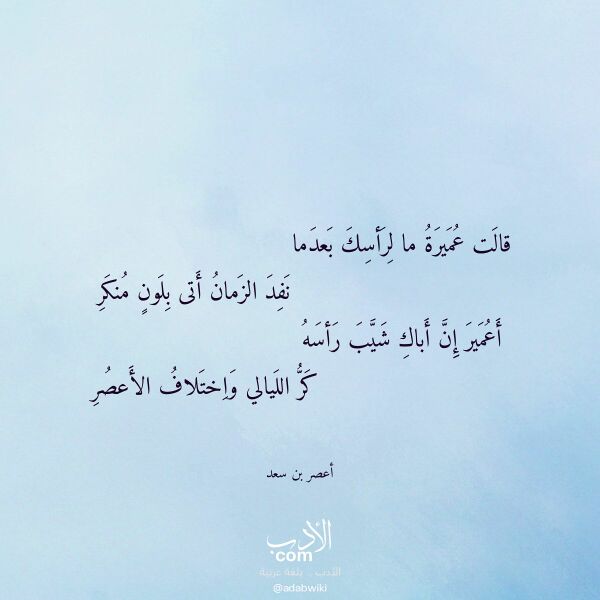 قالَت عُمَيرَةُ ما لِرَأسِكَ بَعدَما
نَفِدَ الزَمانُ أَتى بِلَونٍ مُنكَرِ
أَعُمَيرَ إِنَّ أَباكِ شَيَّبَ رَأسَهُ
كَرُّ اللَيالي وَاِختَلافُ الأَعصُرِ
أعصر بن سعد
الأدب
com
الأدب .. بلغة عربية
@adabwiki